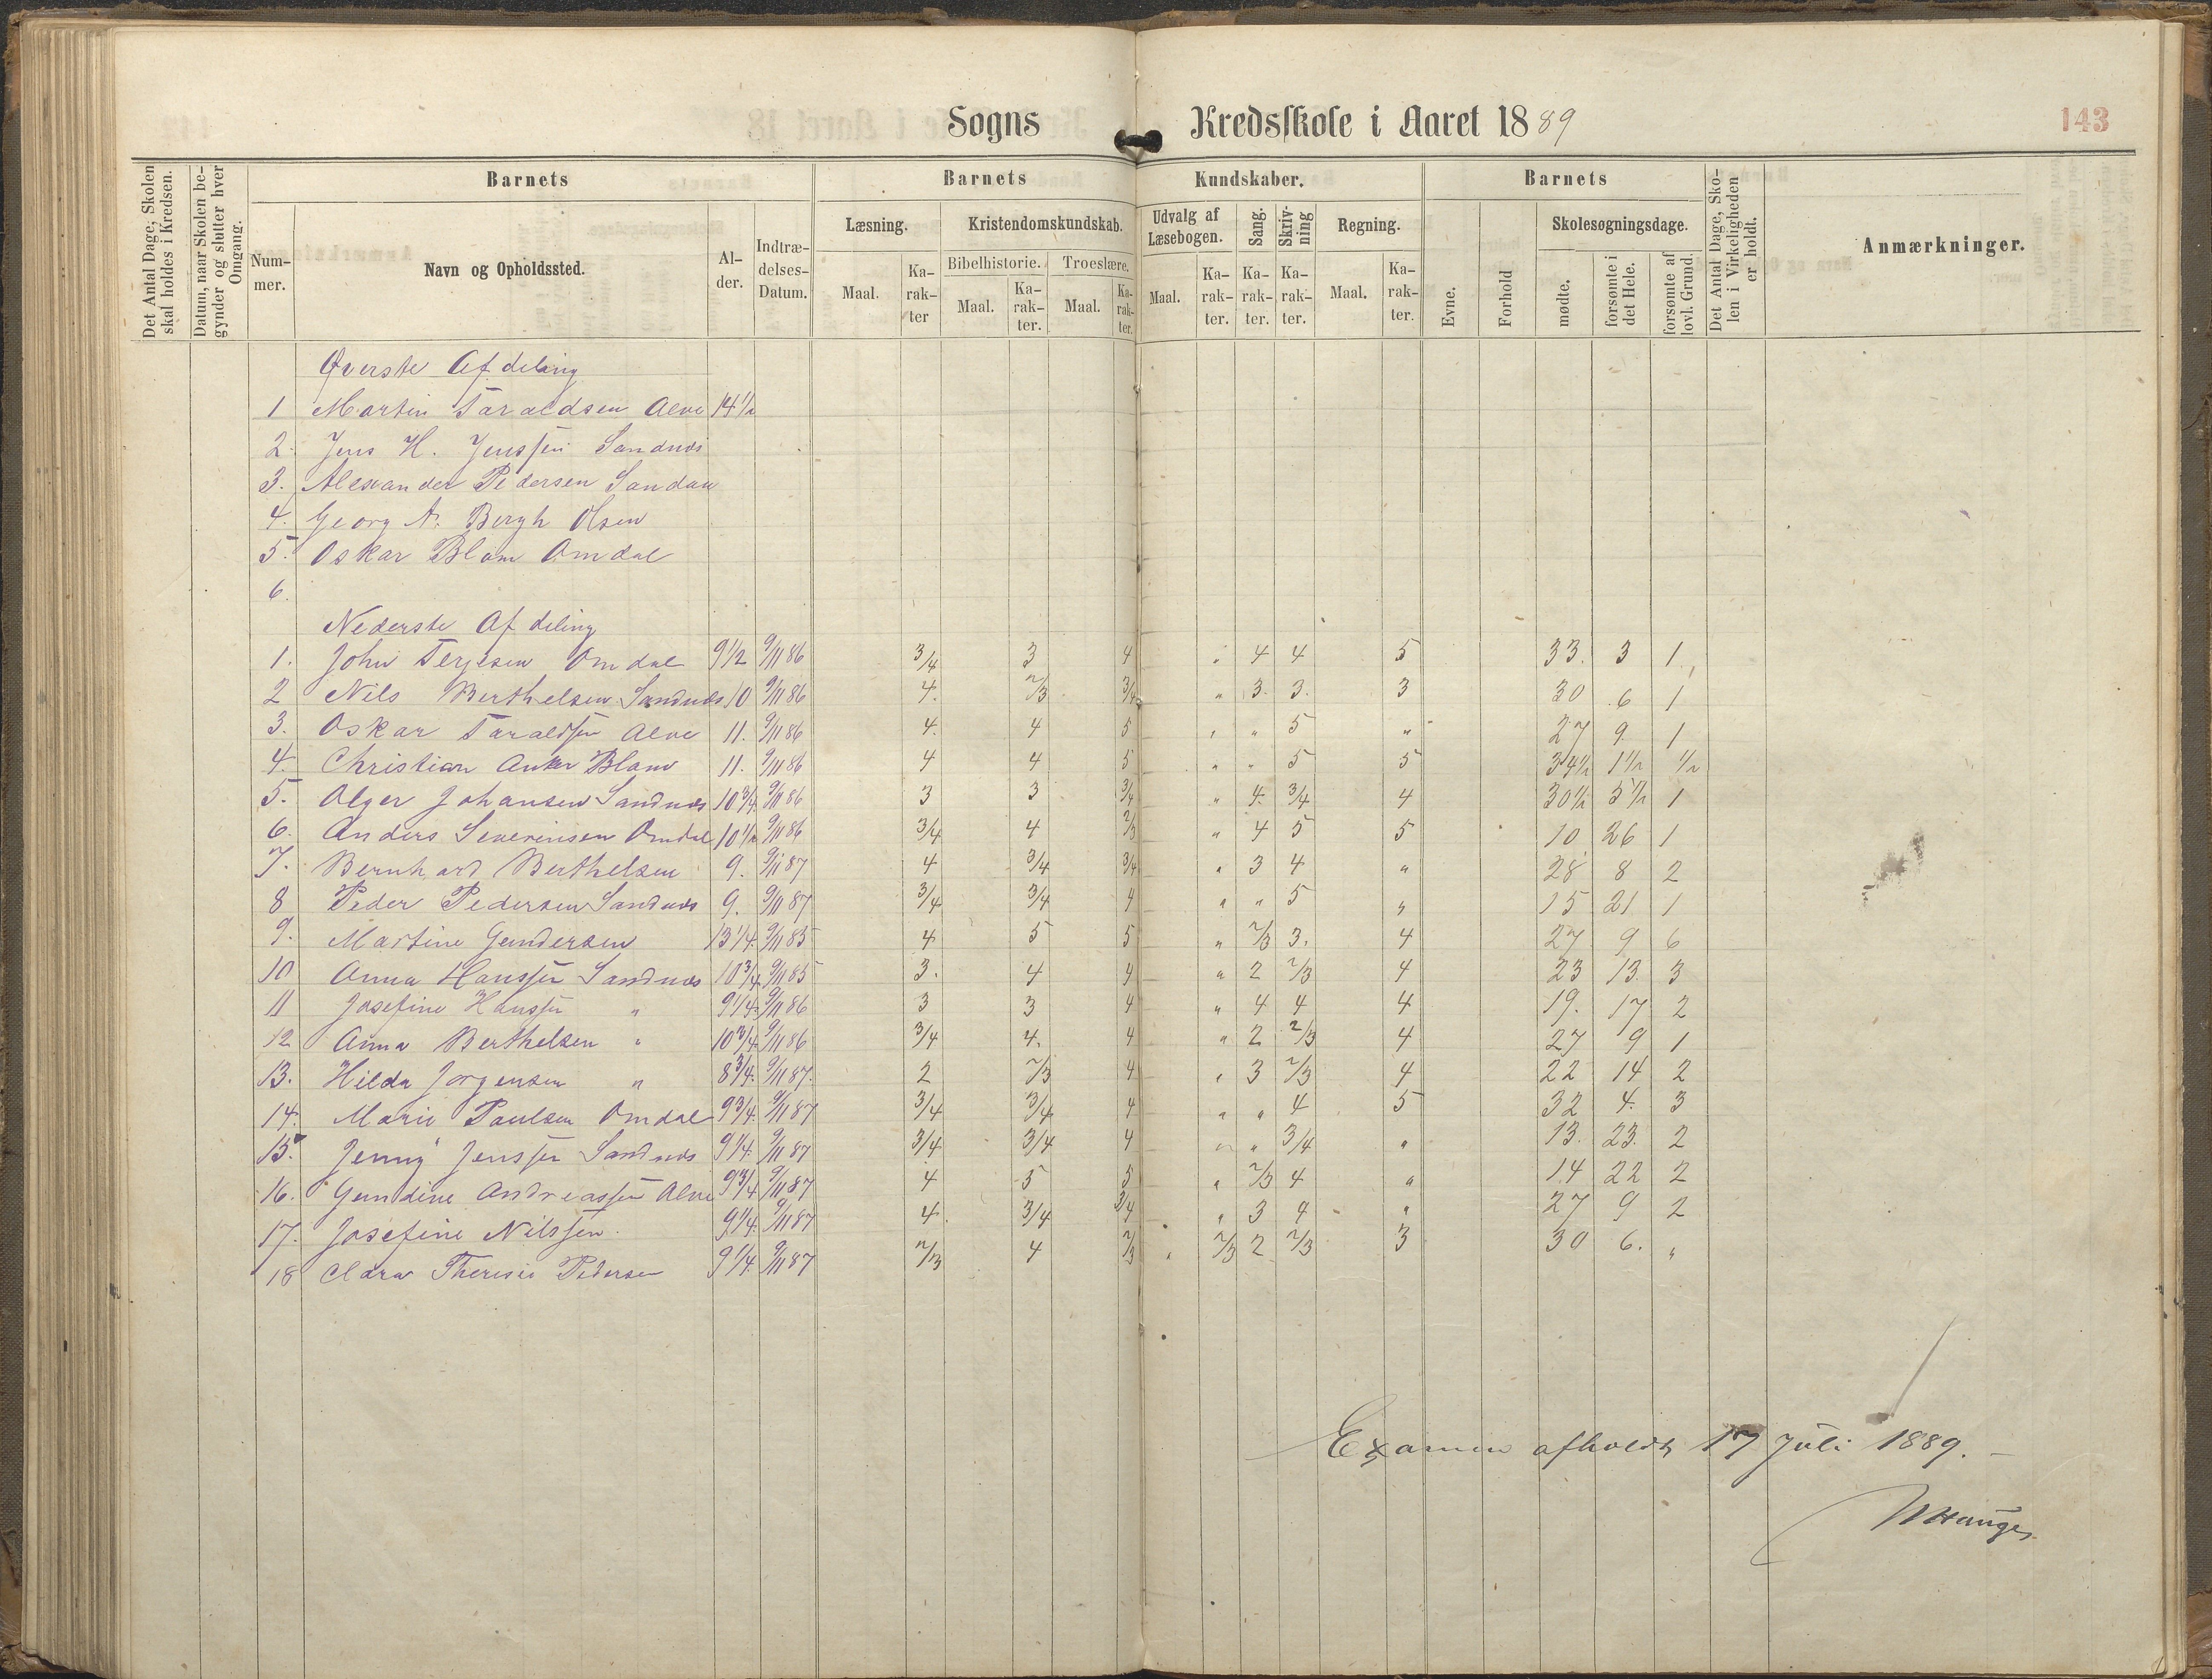 Sogns Kredsskole i Aaret 1889 143
Det Antal Dage, Skolen skal holdes i Kredsen.
Datum, naar Skolen begynder og slutter hver Omgang.
Barnets Barnets Kundskaber. Barnets
Det Antal Dage, Skolen i Virkeligheden er holdt.
Anmærkninger.
Nummer. Navn og Opholdssted. Alder. Indtrædelses-Datum.
Læsning. Kristendomskundskab. Udvalg af Læsebogen. Sang. Skrivning Regning. Skolesøgningsdage.
Bibelhistorie. Troeslære.
Maal. Karakter Maal. Karakter. Maal. Karakter. Maal. Karakter. Karakter. Karakter. Maal. Karakter. Evne. Forhold mødte. forsømte i det Hele. forsømte af lovl. Grund.
Øverste Afdeling
1 Martin Taraldsen Alve 14 1/2
2. Jens H. Jenssen Sandnes
3. Alexander Pedersen Sandnes
4. Georg A. Bergh Olsen
5. Oskar Blom Omdal
6.
Nederste Afdeling
1. John Terjesen Omdal 9 1/2 9/11 86 3/4 3 4 " 4 4 5 33. 3 1
2 Nils Berthelsen Sandnes 10 9/11 86 4. 2/3 3/4 " 3. 3. 3 30 6 1
3. Oskar Taraldsen Alve 11. 9/11 86 4. 4 5 " " 5 " 27 9. 1
4. Christian Anker Blom 11. 9/11 86 4 4 5 " " 5 5 34 1/2 1 1/2 1/2
5. Olger Johansen Sandnes 10 3/4 9/11 86 3 3 3/4 " 4. 3/4 4 30 1/2 5 1/2 1
6. Anders Severinsen Omdal 10 1/2 9/11 86 3/4 4 2/3 " 4 5 5 10 26 1
7. Bernhard Berthelsen 9. 9/11 87 4 3/4 3/4 " 3 4 " 28 8 2
8 Peder Pedersen Sandnes 9. 9/11 87 3/4 3/4 4 " " 5 " 15 21 1
9. Martine Gundersen 13 1/4. 9/11 85 4 5 5 " 2/3 3. 4 27 9 6
10 Anna Hanssen Sandnes 10 3/4 9/11 85 3. 4 4 " 2 2/3 4 23 13. 3
11 Josefine Hanssen " 9 1/4 9/11 86 3 3 4 " 4 4 4 19. 17 2
12 Anna Berthelsen " 10 3/4 9/11 86 3/4 4. 4 " 2 2/3 4 27 9 1
13. Hilda Jørgensen " 8 3/4. 9/11 87. 2 2/3 4 " 3 2/3 4 22 14 2
14. Marie Paulsen Omdal 9 3/4. 9/11 87 3/4 3/4 4 " " 4 5 32 4. 3
15. Jenny Jenssen Sandnes 9 1/4. 9/11 87 3/4 3/4 4 " " 3/4 " 13. 23. 2
16. Gundine Andreassen Alve 9 3/4 9/11 87 4 5 5 " 2/3 4 " 14 22 2
17. Josefine Nilssen. 9 1/4. 9/11 87 4. 3/4 3/4 " 3 4 " 27 9 2
18 Clara Theresie Pedersen 9 1/4. 9/11 87 2/3 4 2/3 " 2/3 2 2/3 3 30 6. "
Examen afholdt 17 Juli 1889.